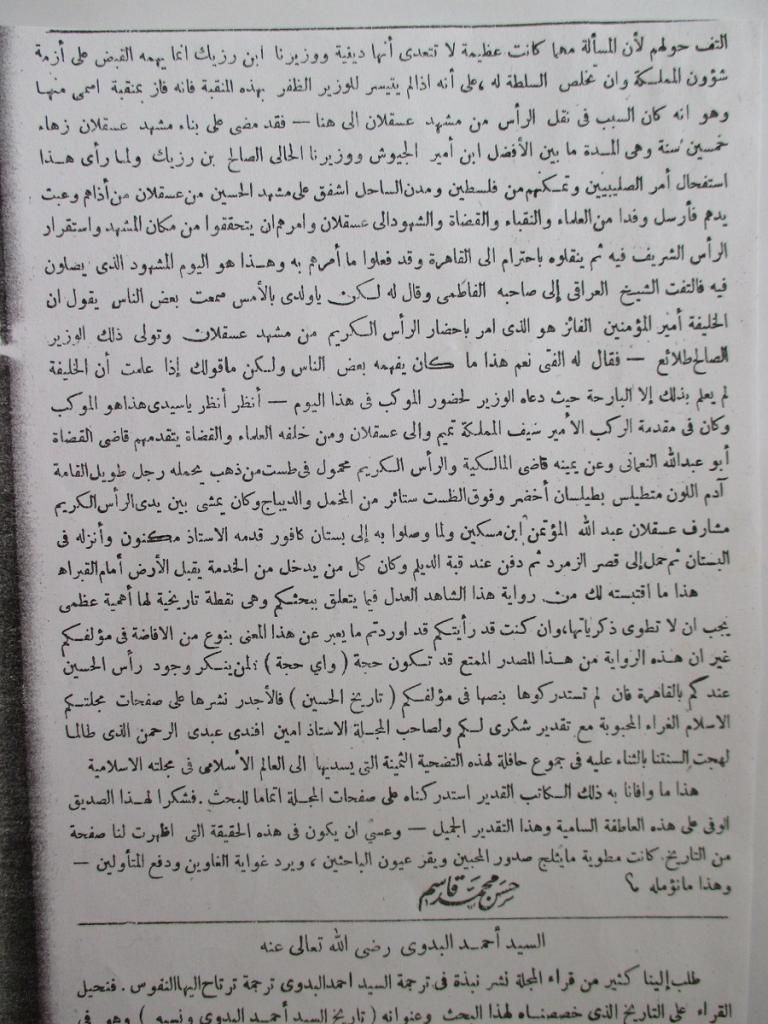 التف حولهم لأن المسألة مهما كانت عظيمة لا تتعدى أنها دينية ووزيرنا ابن رزيك انما يهمه القبض على أزمة
شؤون المملكة وان تخلص السلطة له ،على أنه اذالم يتيسر للوزير الظفر بهذه المنقبة فانه فاز بمنقبة اسمى منها
وهو انه كان السبب فى نقل الرأس من مشهد عسقلان الى هنا — فقد مضى على بناء مشهد عسقلان زهاء
خمسين سنة وهى المدة ما بين الأفضل ابن أمير الجيوش ووزيرنا الحالى الصالح بن رزيك ولما رأى هذا
استفحال أمر الصليبيين وتمكنهم من فلسطين ومدن الساحل اشفق على مشهد الحسين من عسقلان من أذاهم وعبث
يدهم فأرسل وفدا من العلماء والنقباء والقضاة والشهود الى عسقلان وامرهم ان يتحققوا من مكان المشهد واستقرار
الرأس الشريف فيه ثم ينقلوه باحترام الى القاهرة وقد فعلوا ما أمرهم به وهذا هو اليوم المشهود الذى يصلون
فيه فالتفت الشيخ العراقى إلى صاحبه الفاطمى وقال له لكن ياولدى بالأمس سمعت بعض الناس يقول ان
الخليفة أمير المؤمنين الفائز هو الذى امر باحضار الرأس الكريم من مشهد عسقلان وتولى ذلك الوزير
الصالح طلائع — فقال له الفتى نعم هذا ما كان يفهمه بعض الناس ولكن ماقولك إذا علمت أن الخليفة
لم يعلم بذلك إلا البارحة حيث دعاه الوزير لحضور الموكب فى هذا اليوم — أنظر أنظر ياسيدى هذاهو الموكب
وكان فى مقدمة الركب الأمير سيف المملكة تميم والى عسقلان ومن خلفه العلماء والقضاة يتقدمهم قاضى القضاة
أبو عبدالله النعمانى وعن يمينه قاضى المالكية والرأس الكريم محمول فى طست من ذهب يحمله رجل طويل القامة
آدم اللون متطيلس بطيلسان أخضر وفوق الطست ستائر من المخمل والديباج وكان يمشى بين يدى الرأس الكريم
مشارف عسقلان عبد الله المؤتمن ابن مسكين ولما وصلوا به إلى بستان كافور قدمه الاستاذ مكنون وأنزله فى
البستان ثم حمل إلى قصر الزمرد ثم دفن عند قبة الديلم وكان كل من يدخل من الخدمة يقبل الأرض أمام القبر اه
هذا ما اقتبسته لك من رواية هذا الشاهد العدل فيما يتعلق ببحثكم وهى نقطة تاريخية لها أهمية عظمى
يجب ان لا تطوى ذكرياتها،وان كنت قد رأيتكم قد اوردتم ما يعبر عن هذا المعنى بنوع من الافاضة فى مؤلفكم
غير ان هذه الرواية من هذا المصدر الممتع قد تكون حجة ( واي حجة ) لمن ينكر وجود رأس الحسين
عندكم بالقاهرة فان لم تستدركوها بنصها فى مؤلفكم ( تاريخ الحسين ) فالأجدر نشرها على صفحات مجلتكم
الاسلام الغراء المحبوبة مع تقدير شكرى لكم ولصاحب المجلة الاستاذ امين افندى عبدى الرحمن الذى طالما
لهجت ألسنتنا بالثناء عليه فى جموع حافلة لهذه التضحية الثمينة التى يسديها الى العالم الأسلامى فى مجلته الاسلامية
هذا ما وافانا به ذلك الكاتب القدير استدركناه على صفحات المجلة اتماما للبحث .فشكرا لهذا الصديق
الوفى على هذه العاطفة السامية وهذا التقدير الجميل — وعسى ان يكون فى هذه الحقيقة التى اظهرت لنا صفحة
من التاريخ كانت مطوية مايثلج صدور المحبين ويقر عيون الباحثين ، ويرد غواية الغاوين ودفع المتأولين —
وهذا مانؤمله ؟
حسن محمد قاسم
السيد أحمد البدوى رضى الله تعالى عنه
طلب إلينا كثير من قراء المجلة نشر نبذة فى ترجمة السيد احمدالبدوى ترجمة ترتاح اليها النفوس . فنحيل
القراء على التاريخ الذى خصصناه لهذا البحث وعنوانه ( تاريخ السيد أحمد البدوى ونسبه ) وهو فى